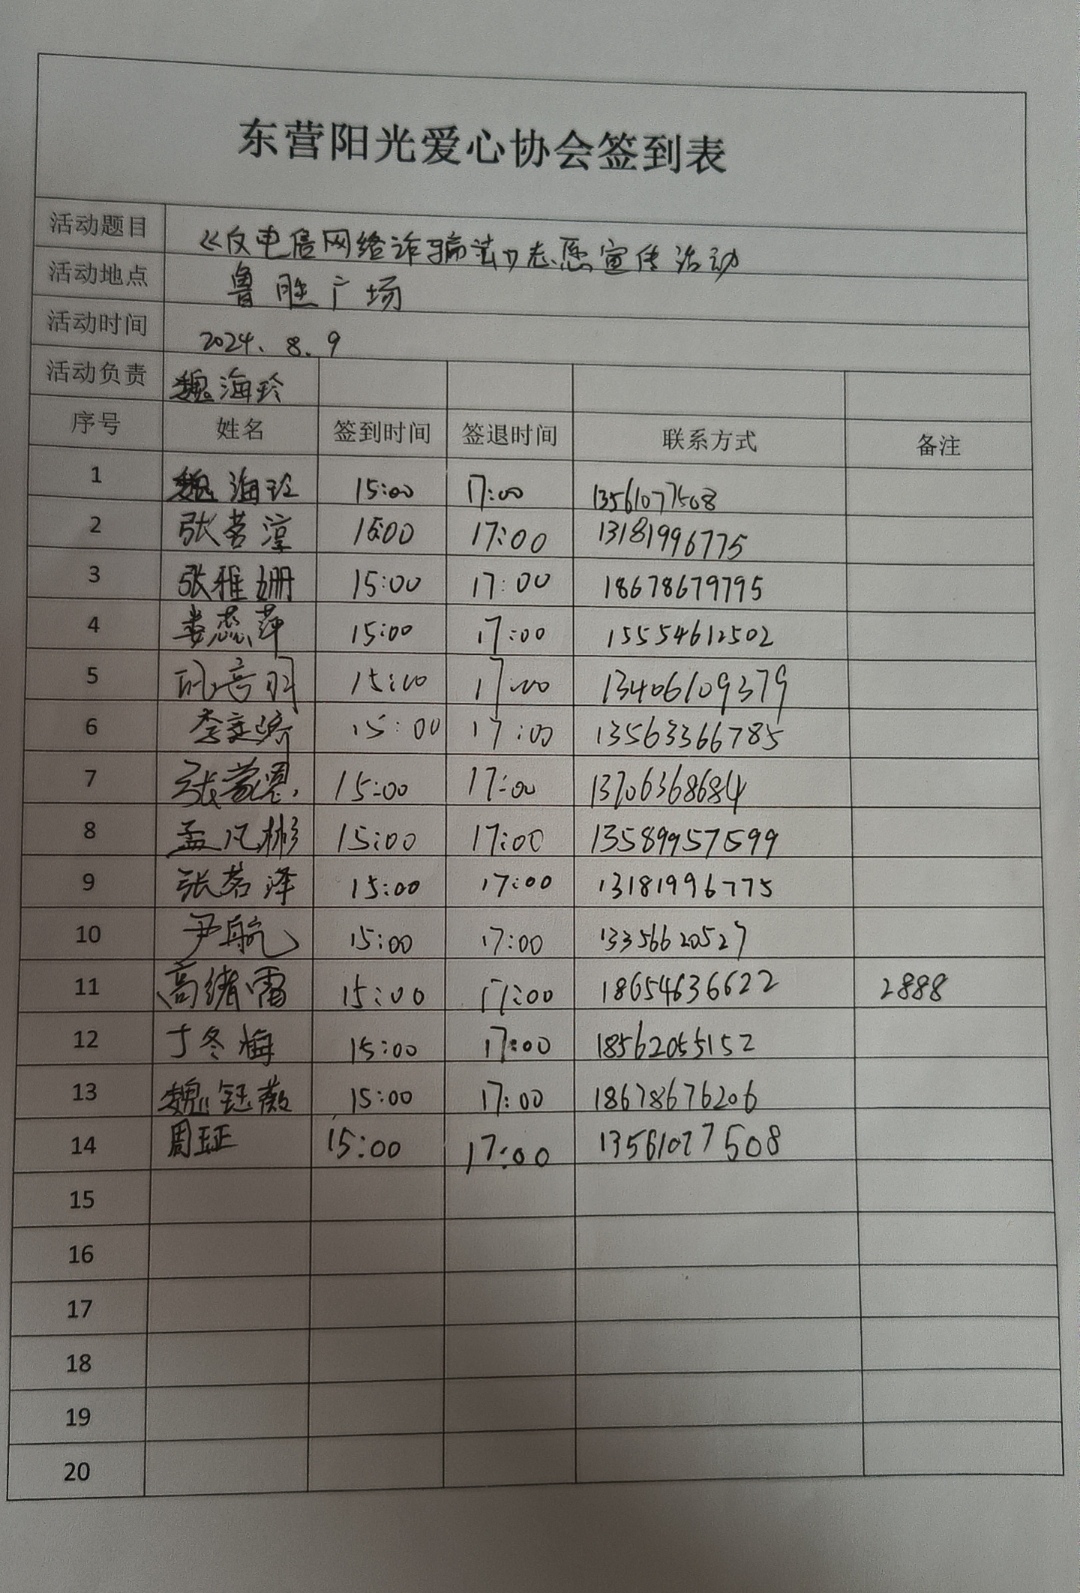 东营阳光爱心协会签到表
活动题目 《反电信网络诈骗法》志愿宣传活动
活动地点 鲁胜广场
活动时间 2024.8.9
活动负责 魏海玲
序号 姓名 签到时间 签退时间 联系方式 备注
1 魏海玲 15:00 17:00 13561077508
2 张茗淳 15:00 17:00 13181996775
3 张雅姗 15:00 17:00 18678679795
4 娄蕊萍 15:00 17:00 15554612502
5 15:00 17:00 13406109379
6 李奕 15:00 17:00 13563366785
7 张蒙恩 15:00 17:00 13706368684
8 孟凡彬 15:00 17:00 13589957599
9 张茗泽 15:00 17:00 13181996775
10 尹航 15:00 17:00 13356620527
11 高绪雷 15:00 17:00 18654636622 2888
12 丁冬梅 15:00 17:00 18562055152
13 魏钰薇 15:00 17:00 18678676206
14 周珏 15:00 17:00 13561077508
15
16
17
18
19
20